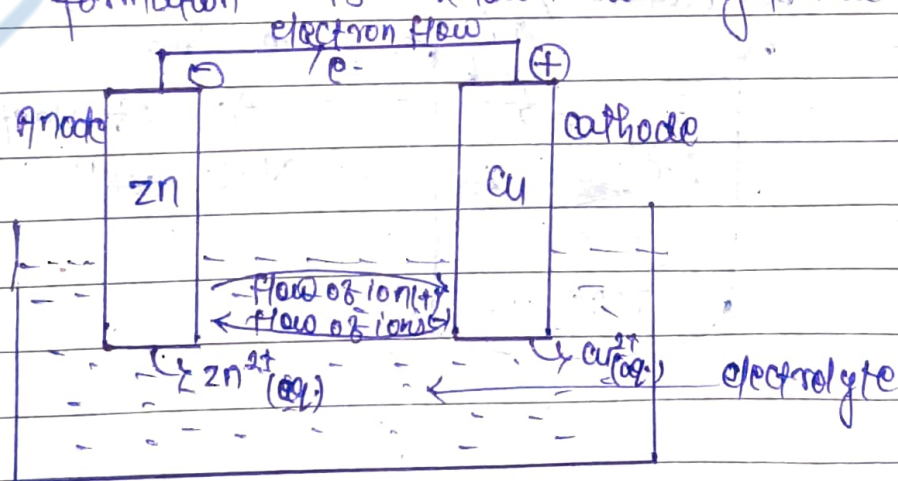 formation
electron flow
e-
⊖ ⊕
Anode cathode
Zn Cu
flow of ion(+)
flow of ions(-)
Zn2+ (aq.)
Cu2+ (aq.)
electrolyte